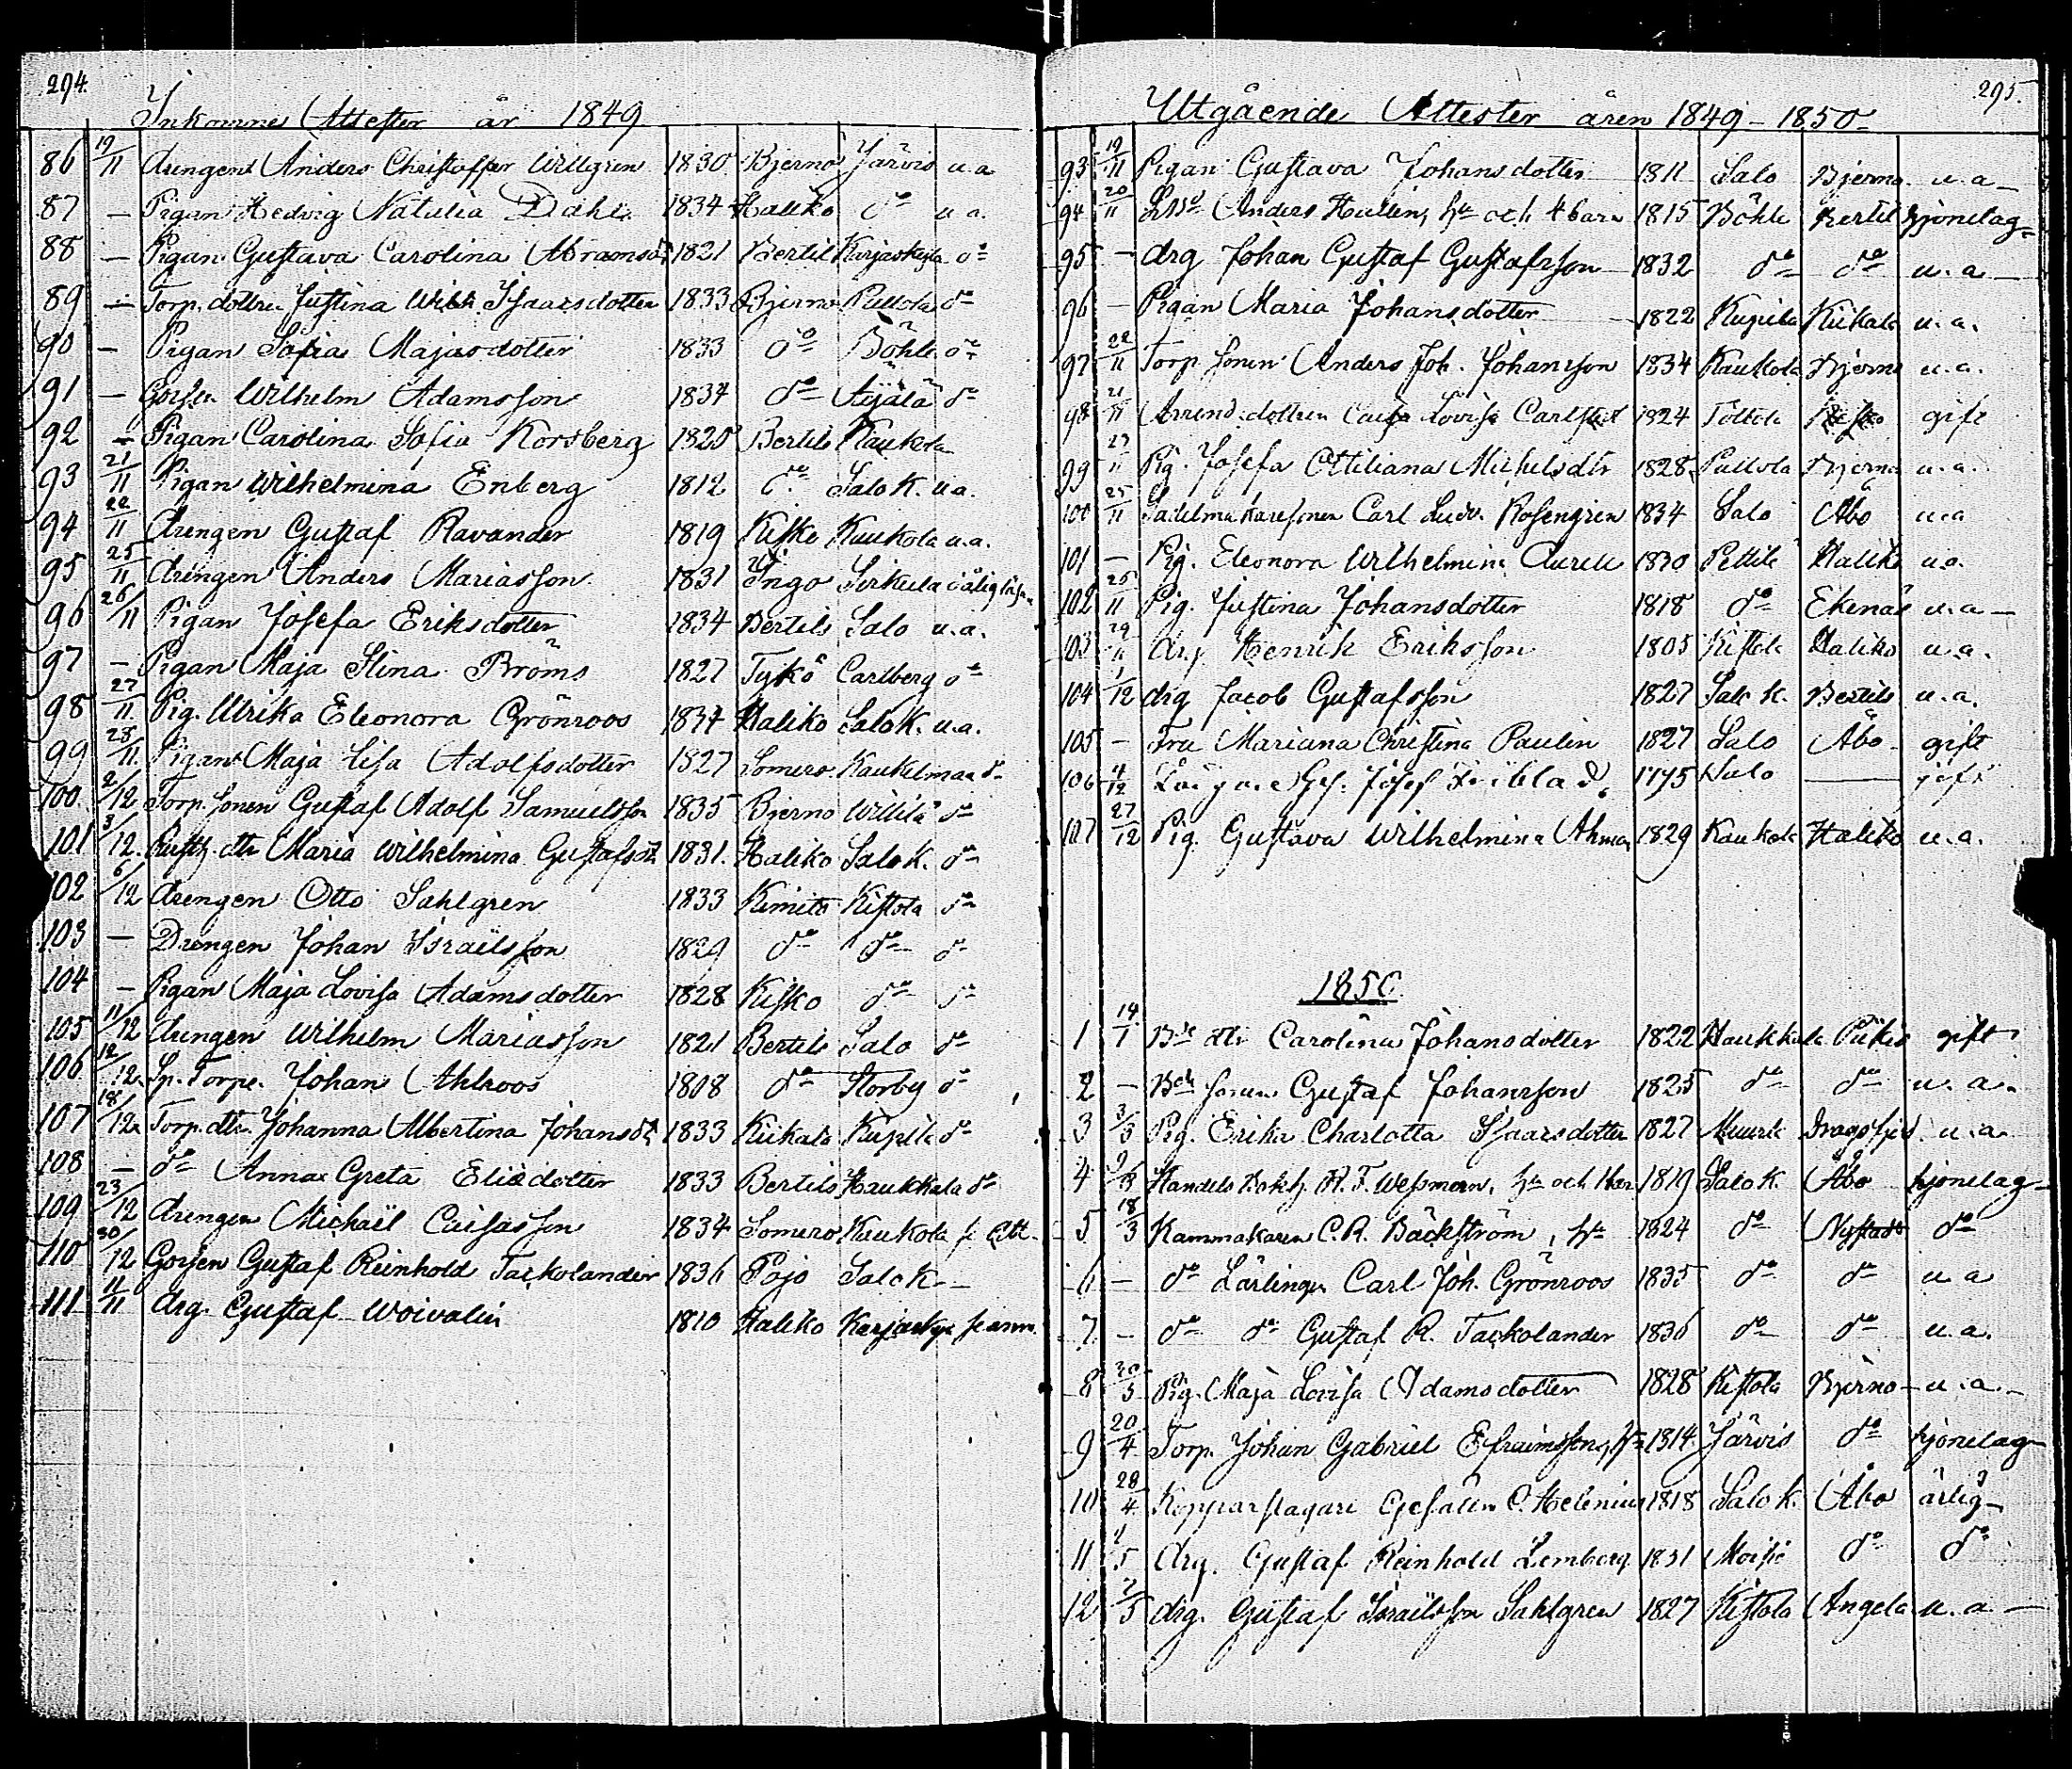 294.
Inkomne Attester år 1849
86 19/11 drengen Anders Christoffer Willgren 1830 Bjerno Järvis u.a
87 — Pigan Hedvig Natalia Dahl 1834 Haliko do u a.
88 — Pigan Gustava Carolina Abramsdr 1821 Bertil Karjaskyla do
89 — Torp. dottren Justina Wilh. Isaacsdotter 1833 Bjerno Pullola do
90 — Pigan Sofia Majasdotter 1833 do Böhle do
91 — Gossen Wilhelm Adamsson 1834 do Äijälä do
92 — Pigan Carolina Sofia Korsberg 1820 Bertils Kaukola
93 21/11 Pigan Wilhelmina Enberg 1812 do Salo K. u.a.
94 22/11 drengen Gustaf Ravander 1819 Kisko Kaukola u.a.
95 25/11 drengen Anders Mariasson 1831 Ingo Sirkula
96 26/11 Pigan Josefa Eriksdotter 1834 Bertils Salo u.a.
97 — Pigan Maja Stina Broms 1827 Tykö Carlberg do
98 27/11 Pig. Ulrika Eleonora Grönroos 1834 Haliko Salo K. u.a.
99 28/11 Pigan Maja Lisa Adolfsdotter 1827 Somero Kaukelmaa do
100 2/12 Torp. sonen Gustaf Adolf Samuelsson 1835 Bjerno Willilä do
101 3/12 Rusth. dtr Maria Wilhelmina Gustafsdr 1831. Haliko Salo K. do
102 6/12 drengen Otto Sahlgren 1833 Kimito Kistola do
103 — Drengen Johan Israëlsson 1829 do do do
104 — Pigan Maja Lovisa Adamsdotter 1828 Kisko do do
105 11/12 drengen Wilhelm Mariasson 1821 Bertils Salo do
106 12/12 Sp. Torpe. Johan Ahlroos 1808 do Storby do
107 18/12 Torp. dtr. Johanna Albertina Johansdr 1833 Kiikala Kupila do
108 — do Anna Greta Eliedotter 1833 Bertils Haukkala do
109 23/12 drengen Michaël Caisasson 1834 Somero Kaukola
110 30/12 Gossen Gustaf Reinhold Tackolander 1836 Pojo Salo K —
111 11/11 drg. Gustaf Woivalin 1810 Haliko Karjaskyla
295.
Utgående Attester åren 1849 – 1850
93 19/11 Pigan Gustava Johansdotter 1811 Salo Bjerno u.a —
94 20/11 Anders Hellen, hu och 4 barn 1815 Böhle Bertil hjonelag
95 — drg Johan Gustaf Gustafsson 1832 do do u.a —
96 — Pigan Maria Johansdotter 1822 Kupila Kiikala u.a.
97 22/11 Torp. sonen Anders Joh. Johansson 1834 Kaukola Bjerno u.a.
98 21/11 Arrend. dottren Caisa Lovisa 1824 Tottola Kisko gift
99 23/11 Pig. Josefa Ottiliana Michelsdtr 1828 Pullola Bjerno u.a.
100 25/11 Sadelmakaresonen Carl Ludv. Rosengren 1834 Salo Åbo u.a
101 — Pig. Eleonora Wilhelmina Aurell 1830 Pettilä Haliko u.a.
102 25/11 Pig. Justina Johansdotter 1818 do Ekenäs u.a —
103 29/11 drg Henrik Eriksson 1805 Kistola Haliko u.a.
104 1/12 drg Jacob Gustafsson 1827 Salo K. Bertils u.a.
105 — Fru Mariana Christina Paulin 1827 Salo Åbo gift
106 4/12 Ges. Josef 1795 Salo —
107 27/12 Pig. Gustava Wilhelmina Ahman 1829 Kaukola Haliko u.a.
1850
1 14/1 Bde dtr Carolina Johansdotter 1822 Haukkala Pikis gift
2 — Bde sonen Gustaf Johansson 1825 do do u.a.
3 3/3 Pig. Erika Charlotta Isaacsdotter 1827 Muurla Dragsfjerd u.a.
4 9/3 Handels Bokh. A. F. Wesman, hu och barn 1819 Salo K. Åbo hjonelag
5 18/3 Kammakaren C. R. Bäckström, hu 1824 do Nystad do
6 — do Lärlingen Carl Joh. Grönroos 1835 do do u a
7 — do do Gustaf R. Tackolander 1836 do do u.a.
8 20/3 Pig. Maja Lovisa Adamsdotter 1828 Kistola Bjerno u.a.
9 20/4 Torp. Johan Gabriel Efraimsson, hu 1814 Järvis do hjonelag
10 28/4 Kopparslagare Gesällen O. Helenius 1818 Salo K. Åbo ärlig
11 2/5 drg. Gustaf Reinhold Lemberg 1831 Moisio do do
12 2/5 drg. Gustaf Israëlsson Sahlgren 1827 Kistola Angela u.a. —